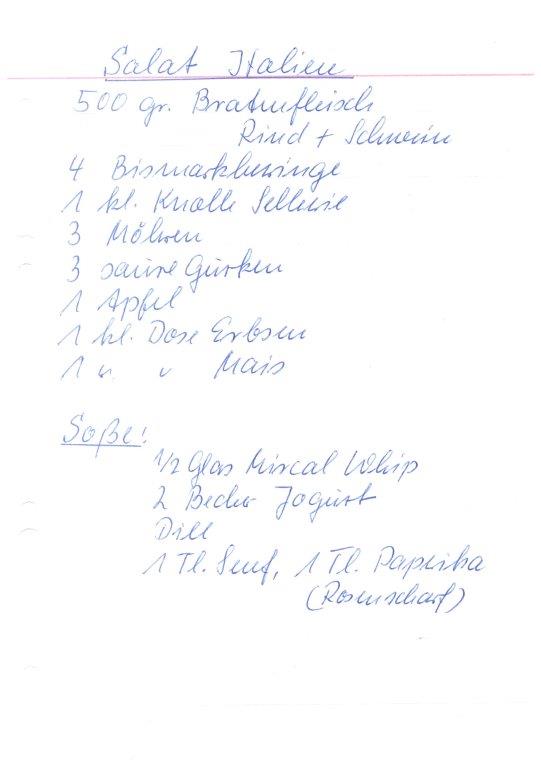 Salat Italien
500 gr. Bratenfleisch
Rind + Schwein
4 Bismarkheringe
1 kl. Knolle Sellerie
3 Möhren
3 saure Gurken
1 Apfel
1 kl. Dose Erbsen
1 " " Mais
Soße!
1/2 Glas Mircal Whip
2 Becher Jogurt
Dill
1 Tl. Senf, 1 Tl. Paprika
(Rosenscharf)